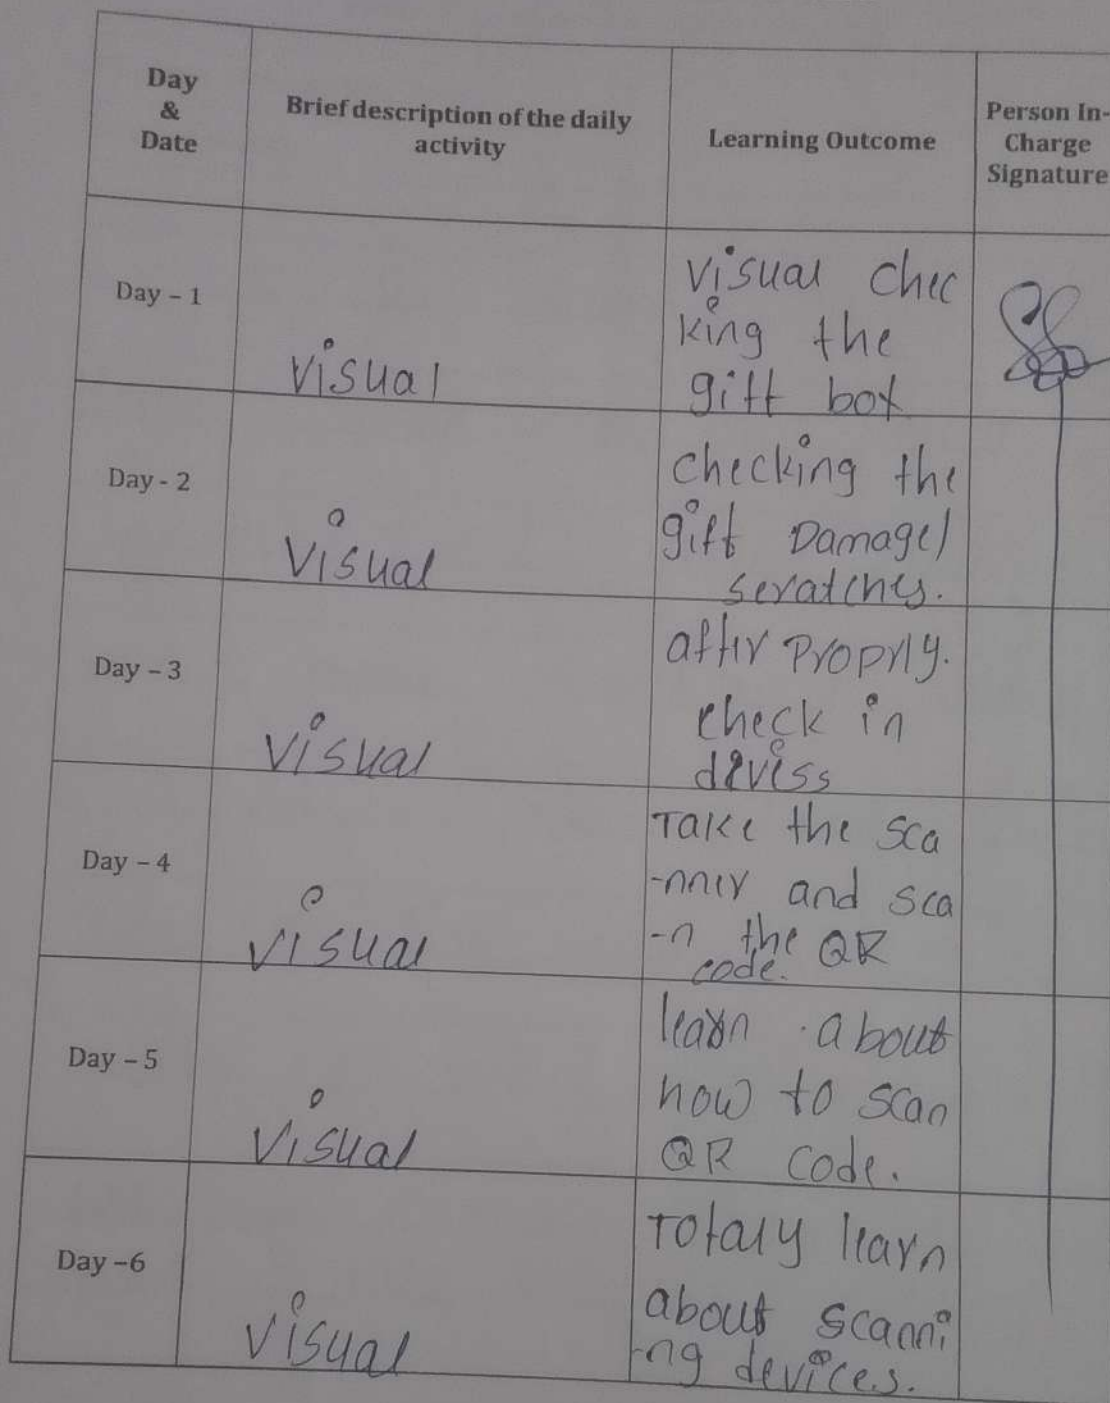 Day
&
Date
Brief description of the daily
activity
Learning Outcome
Person In-
Charge
Signature
Day – 1
Visual
Visual chec
king the
gift box
Day - 2
Visual
checking the
gift Damage/
scratches.
Day – 3
Visual
after Proprly.
check in
diviss
Day – 4
Visual
Take the sca
-nner and sca
-n the QR
code.
Day – 5
Visual
learn about
how to scan
QR code.
Day –6
Visual
Totaly learn
about scanni
-ng devices.